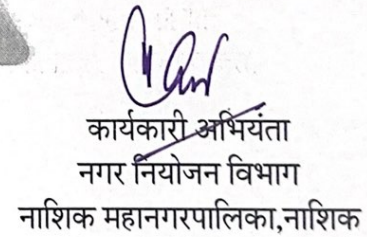 कार्यकारी अभियंता
नगर नियोजन विभाग
नाशिक महानगरपालिका,नाशिक